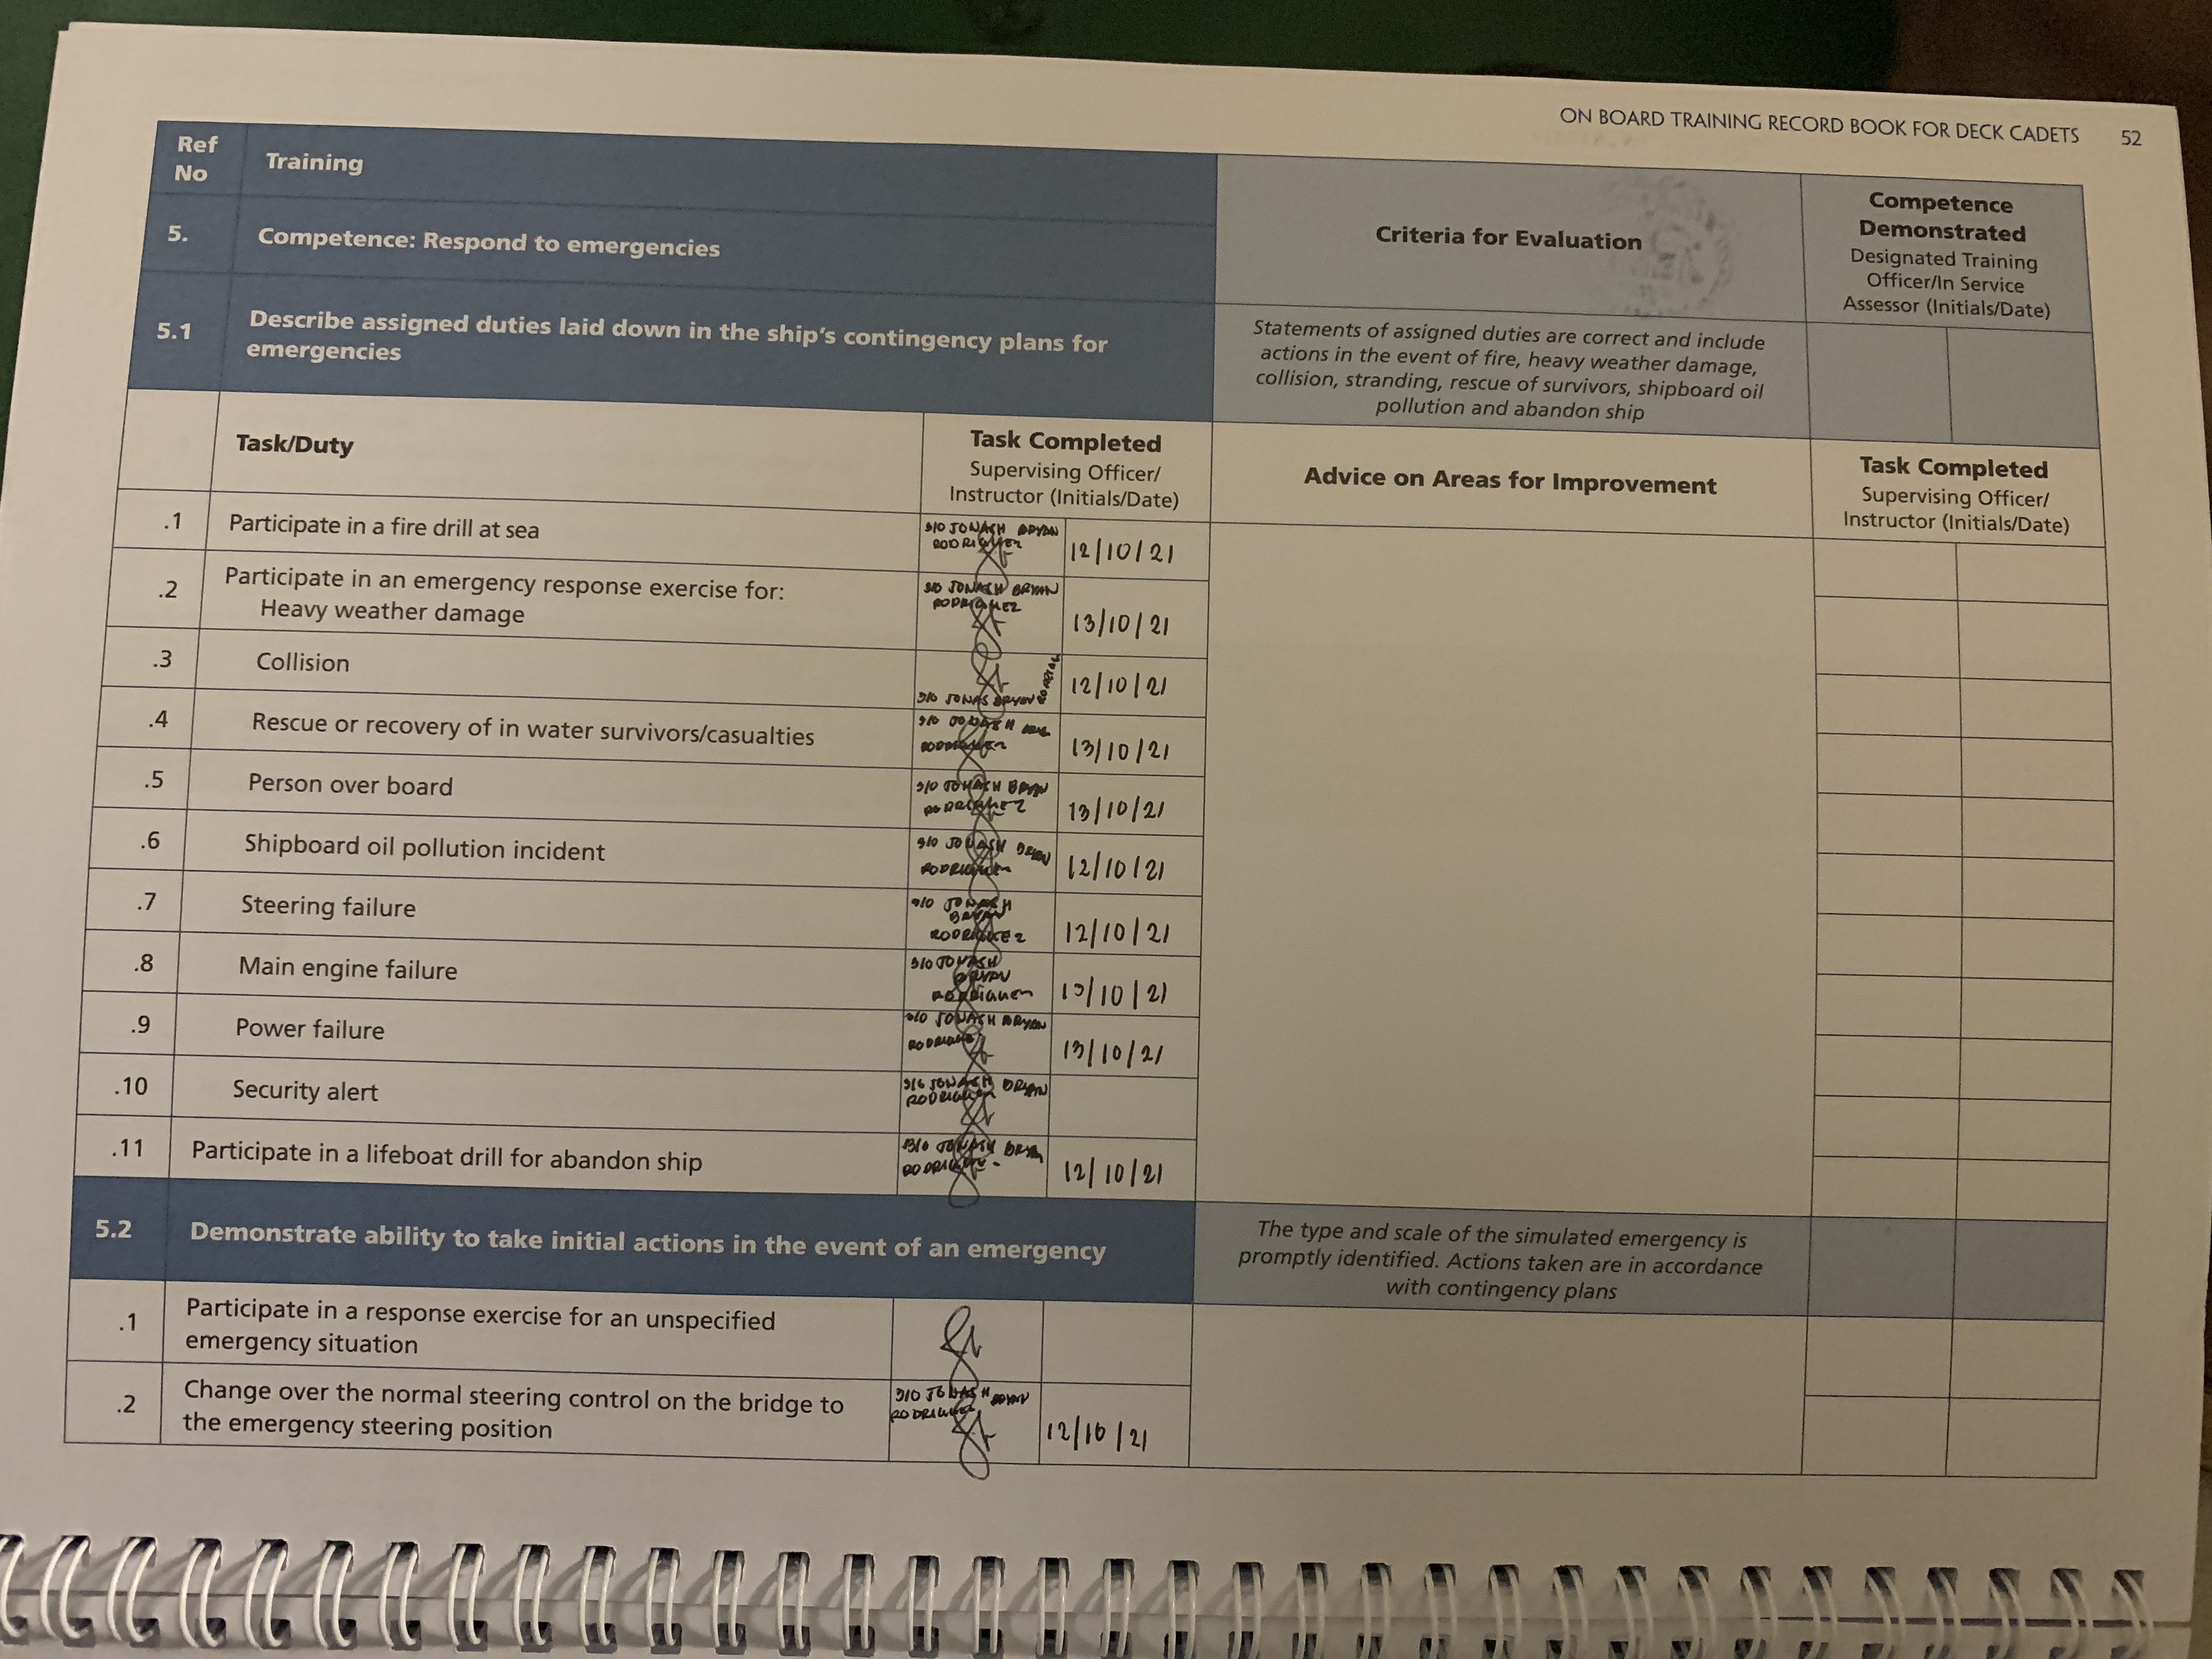 ON BOARD TRAINING RECORD BOOK FOR DECK CADETS 52
Ref
No
Training
Criteria for Evaluation
Competence
Demonstrated
Designated Training
Officer/In Service
Assessor (Initials/Date)
5. Competence: Respond to emergencies
5.1 Describe assigned duties laid down in the ship's contingency plans for
emergencies
Statements of assigned duties are correct and include
actions in the event of fire, heavy weather damage,
collision, stranding, rescue of survivors, shipboard oil
pollution and abandon ship
Task/Duty
Task Completed
Supervising Officer/
Instructor (Initials/Date)
Advice on Areas for Improvement
Task Completed
Supervising Officer/
Instructor (Initials/Date)
.1 Participate in a fire drill at sea 12/10/21
.2 Participate in an emergency response exercise for:
Heavy weather damage 13/10/21
.3 Collision 12/10/21
.4 Rescue or recovery of in water survivors/casualties 13/10/21
.5 Person over board 13/10/21
.6 Shipboard oil pollution incident 12/10/21
.7 Steering failure 12/10/21
.8 Main engine failure 13/10/21
.9 Power failure 13/10/21
.10 Security alert
.11 Participate in a lifeboat drill for abandon ship 12/10/21
5.2 Demonstrate ability to take initial actions in the event of an emergency
The type and scale of the simulated emergency is
promptly identified. Actions taken are in accordance
with contingency plans
.1 Participate in a response exercise for an unspecified
emergency situation
.2 Change over the normal steering control on the bridge to
the emergency steering position 12/10/21